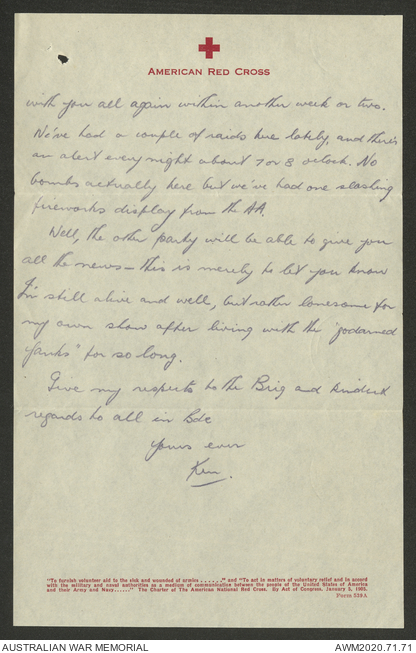 AMERICAN RED CROSS
with you all again within another week or two.
We've had a couple of raids here lately, and there's
an alert every night about 7 or 8 oclock. No
bombs actually here but we've had one slashing
fireworks display from the AA.
Well, the other party will be able to give you
all the news – this is merely to let you know
I'm still alive and well, but rather lonesome for
my own show after living with the "godarned
Yanks" for so long.
Give my respects to the Brig and kindest
regards to all in Bde
Yours ever
Ken.
"To furnish volunteer aid to the sick and wounded of armies . . . . . ." and "To act in matters of voluntary relief and in accord
with the military and naval authorities as a medium of communication between the people of the United States of America
and their Army and Navy......" The Charter of The American National Red Cross. By Act of Congress, January 5, 1905.
Form 539A
AUSTRALIAN WAR MEMORIAL
AWM2020.71.71